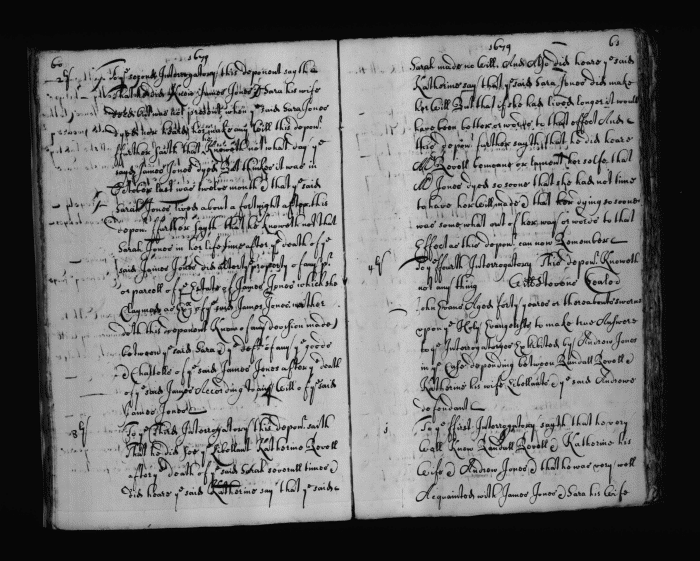 60
1679
2ly To ye second Interrogatory this deponent sayth
That he did Know James Jones & Sara his wife
when ye said Sara Jones
dyed nor heard her make any Will this depont
ffurther saith that he Knoweth not what day ye
said James Jones dyed But thinkes it was in
October last was twelve month & that ye said
Sarah Jones lived about a fortnight after this
depon. ffurther sayth that he Knoweth not that
Sarah Jones in her life time after ye death of ye
said James Jones did alter ye property of any pt
or parcell of ye Estate of James Jones which she
Claymed as Exx of ye said James Jones neither
doth this deponent Know of any devision made
betweene ye said Sara & of any ye goods
& Chattells of ye said James Jones after ye death
of ye said James According to Will of ye said
James Jones
3ly To ye Third Interrogatory this depont saith
That he did see ye Libellant Katherine Revell
after ye death of ye said Sarah severall times &
did heare ye said Katherine say that ye said
1679
61
Sarah made no Will. And Also did heare ye said
Katherine say that ye said Sara Jones did make
her Will But that if she had lived longer it would
have been better or words to that effect And
this depont further sayth that he did heare
Mrs Revell bemoane or lament her selfe that
Mrs Jones dyed so soone that she had not time
to have her Will made & that her dying so soone
was some what out of her way or words to that
Effect as this depont can now Remember
4ly To ye ffourth Interrogatory This depont Knoweth
not any thing Will Stevens Sealed
John Evans Aged forty yeares or thereabouts sworne
upon ye Holy Evangelists to make true Answere
to ye Interrogatoryes Exhibited by Andrew Jones
in ye Case depending between Randall Revell &
Katherine his wife Libellants & ye said Andrew
defendant
1 To ye ffirst Interrogatory sayth that he very
well Know Randall Revell & Katherine his
Wife & Andrew Jones & that he was very well
Acquainted with James Jones & Sara his Wife